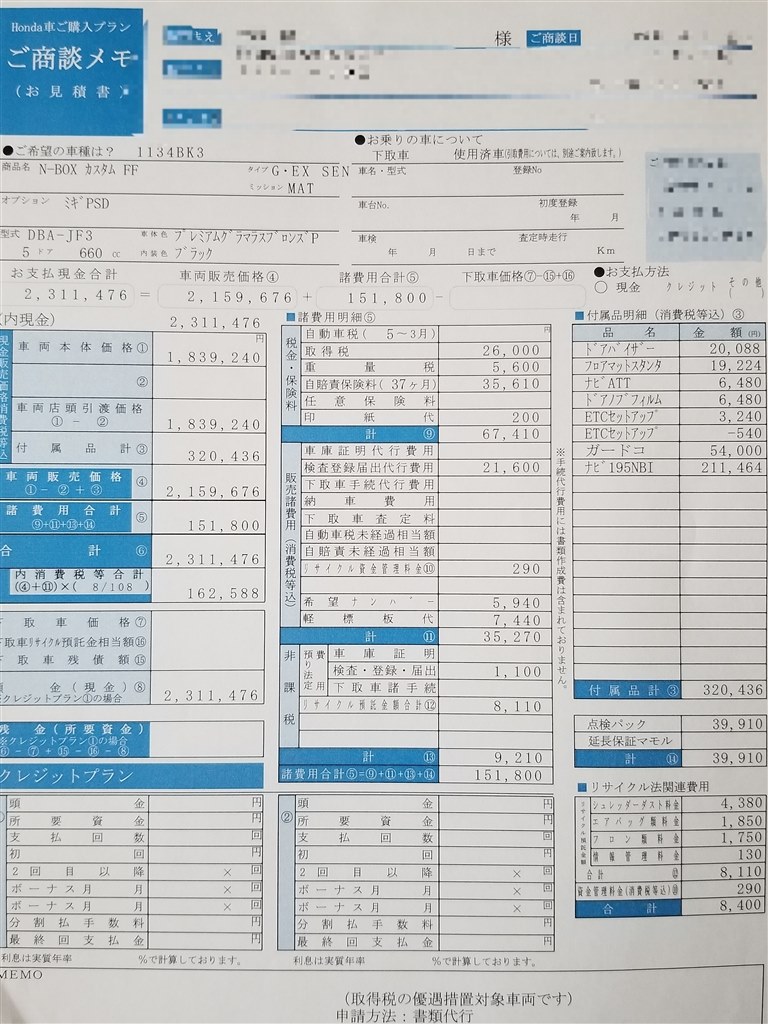 Honda車ご購入プラン
ご商談メモ
(お見積書)
様 ご商談日
●ご希望の車種は? 1134BK3
商品名 N-BOX カスタム FF
タイプ G・EX SEN
ミッション MAT
オプション ミギPSD
型式 DBA-JF3
車体色 プレミアムグラマラスブロンズP
5 ドア 660 cc 内装色 ブラック
●お乗りの車について
下取車 使用済車(引取費用については、別途ご案内致します。)
車名・型式 登録No
車台No. 初度登録
年 月
車検 査定時走行
年 月 日まで Km
お支払現金合計 車両販売価格④ 諸費用合計⑤ 下取車価格⑦-⑮+⑯
2,311,476 = 2,159,676 + 151,800 -
●お支払方法
○ 現金 クレジット その他
( )
(内現金) 2,311,476
現金販売価格消費税等込
車両本体価格① 円
1,839,240
②
車両店頭引渡価格
①-②
1,839,240
付属品計③ 320,436
車両販売価格
①-②+③
④ 2,159,676
諸費用合計
⑨+⑪+⑬+⑭
⑤ 151,800
合計⑥ 2,311,476
内消費税等合計
(④+⑪)×( 8/108 )
162,588
下取車価格⑦
下取車リサイクル預託金相当額⑯
下取車残債額⑮
金(現金)⑧
※クレジットプラン①の場合
2,311,476
残金(所要資金)
※クレジットプラン①の場合
⑥-⑦+⑮-⑯-⑧
■諸費用明細⑤
税金・保険料
自動車税( 5~3月) 円
取得税 26,000
重量税 5,600
自賠責保険料(37ヶ月) 35,610
任意保険料
印紙代 200
計⑨ 67,410
販売諸費用(消費税等込)
車庫証明代行費用
検査登録届出代行費用 21,600
下取車手続代行費用
納車費用
下取車査定料
自動車税未経過相当額
自賠責未経過相当額
リサイクル資金管理料金⑩ 290
希望ナンバー 5,940
軽標板代 7,440
計⑪ 35,270
※手続代行費用には書類作成費は含まれておりません。
非課税
預り法定費用
車庫証明
検査・登録・届出 1,100
下取車諸手続
リサイクル預託金額合計⑫ 8,110
計⑬ 9,210
諸費用合計⑤=⑨+⑪+⑬+⑭ 151,800
■付属品明細(消費税等込)③
品名 金額(円)
ドアバイザー 20,088
フロアマットスタンダ 19,224
ナビATT 6,480
ドアノブフィルム 6,480
ETCセットアップ 3,240
ETCセットアップ -540
ガードコ 54,000
ナビ195NBI 211,464
付属品計③ 320,436
点検パック 39,910
延長保証マモル
計⑭ 39,910
■リサイクル法関連費用
リサイクル預託金額
シュレッダーダスト料金 4,380
エアバッグ類料金 1,850
フロン類料金 1,750
情報管理料金 130
合計⑫ 8,110
資金管理料金(消費税等込)⑩ 290
合計 8,400
クレジットプラン
頭金 円
所要資金 円
支払回数 回
初回 円
2回目以降 × 回
ボーナス月 月 × 回
ボーナス月 月 × 回
分割払手数料 円
最終回支払金 円
利息は実質年率 %で計算しております。
②
頭金 円
所要資金 円
支払回数 回
初回 円
2回目以降 × 回
ボーナス月 月 × 回
ボーナス月 月 × 回
分割払手数料 円
最終回支払金 円
利息は実質年率 %で計算しております。
MEMO
(取得税の優遇措置対象車両です)
申請方法:書類代行